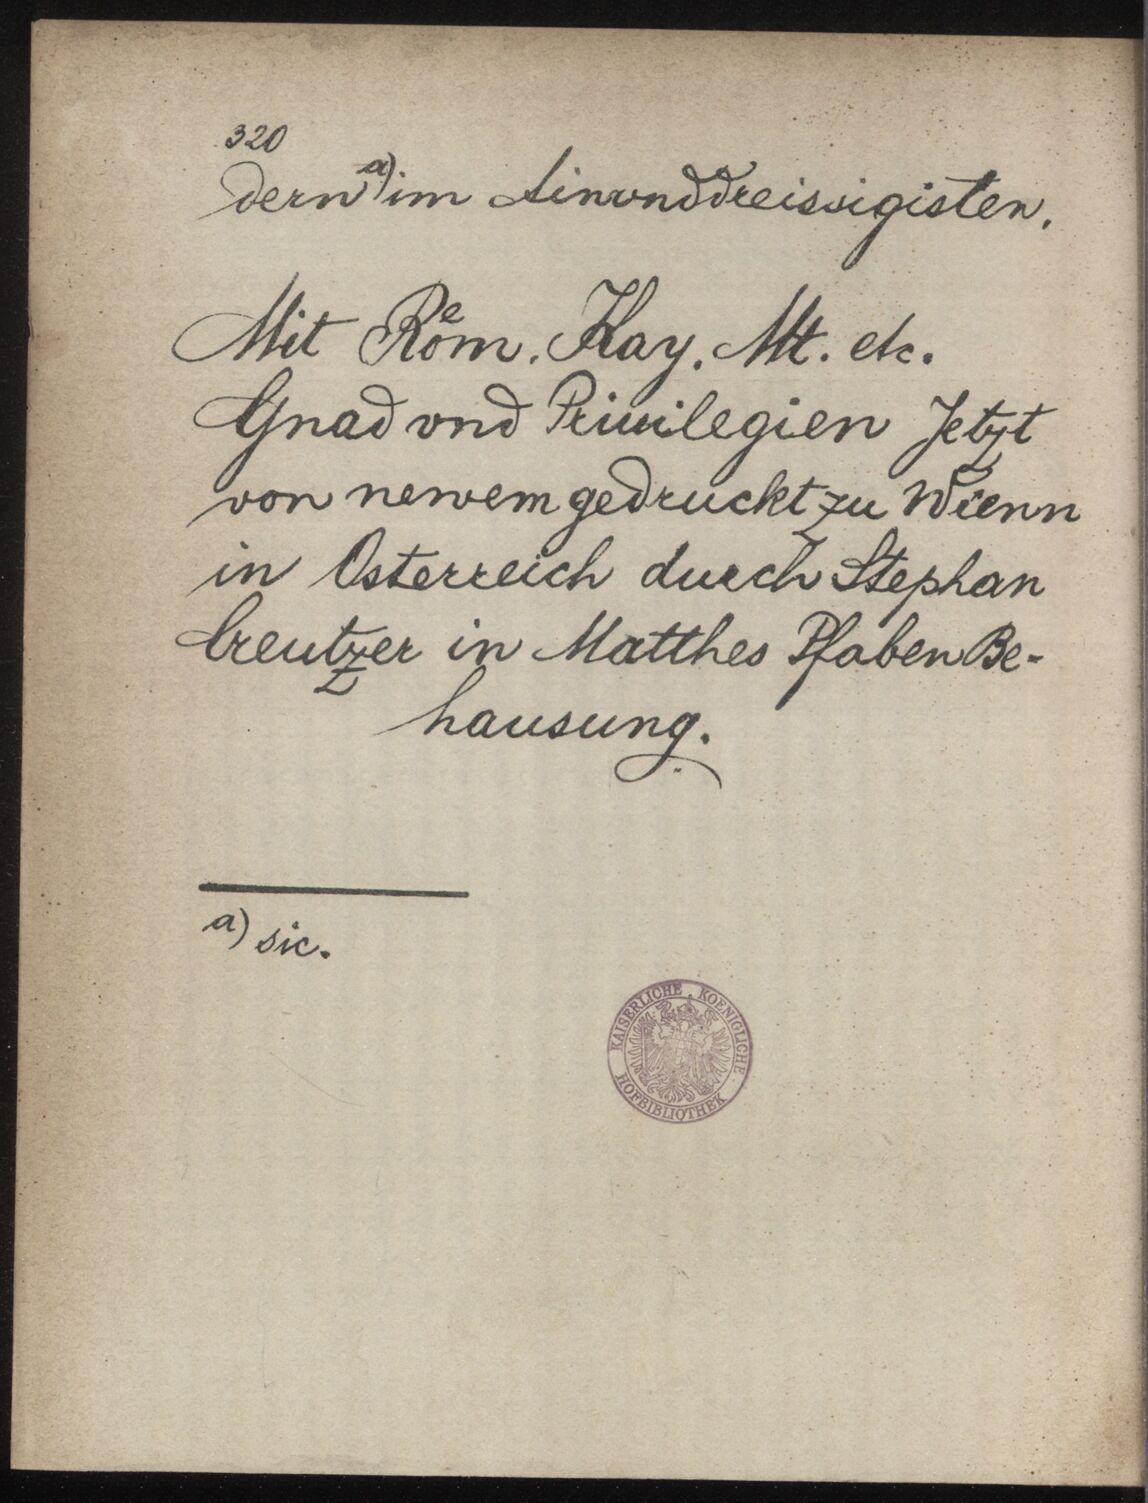 320
dern a) im Ainvnddreissigisten.
Mit Roͤm. Kay. Mt. etc.
Gnad vnd Priuilegien Jetzt
von newem gedruckt zu Wienn
in Osterreich durch Stephan
Creutzer in Matthes Pfaben Be-
hausung.
a) sic.
KAISERLICHE KOENIGLICHE
HOFBIBLIOTHEK